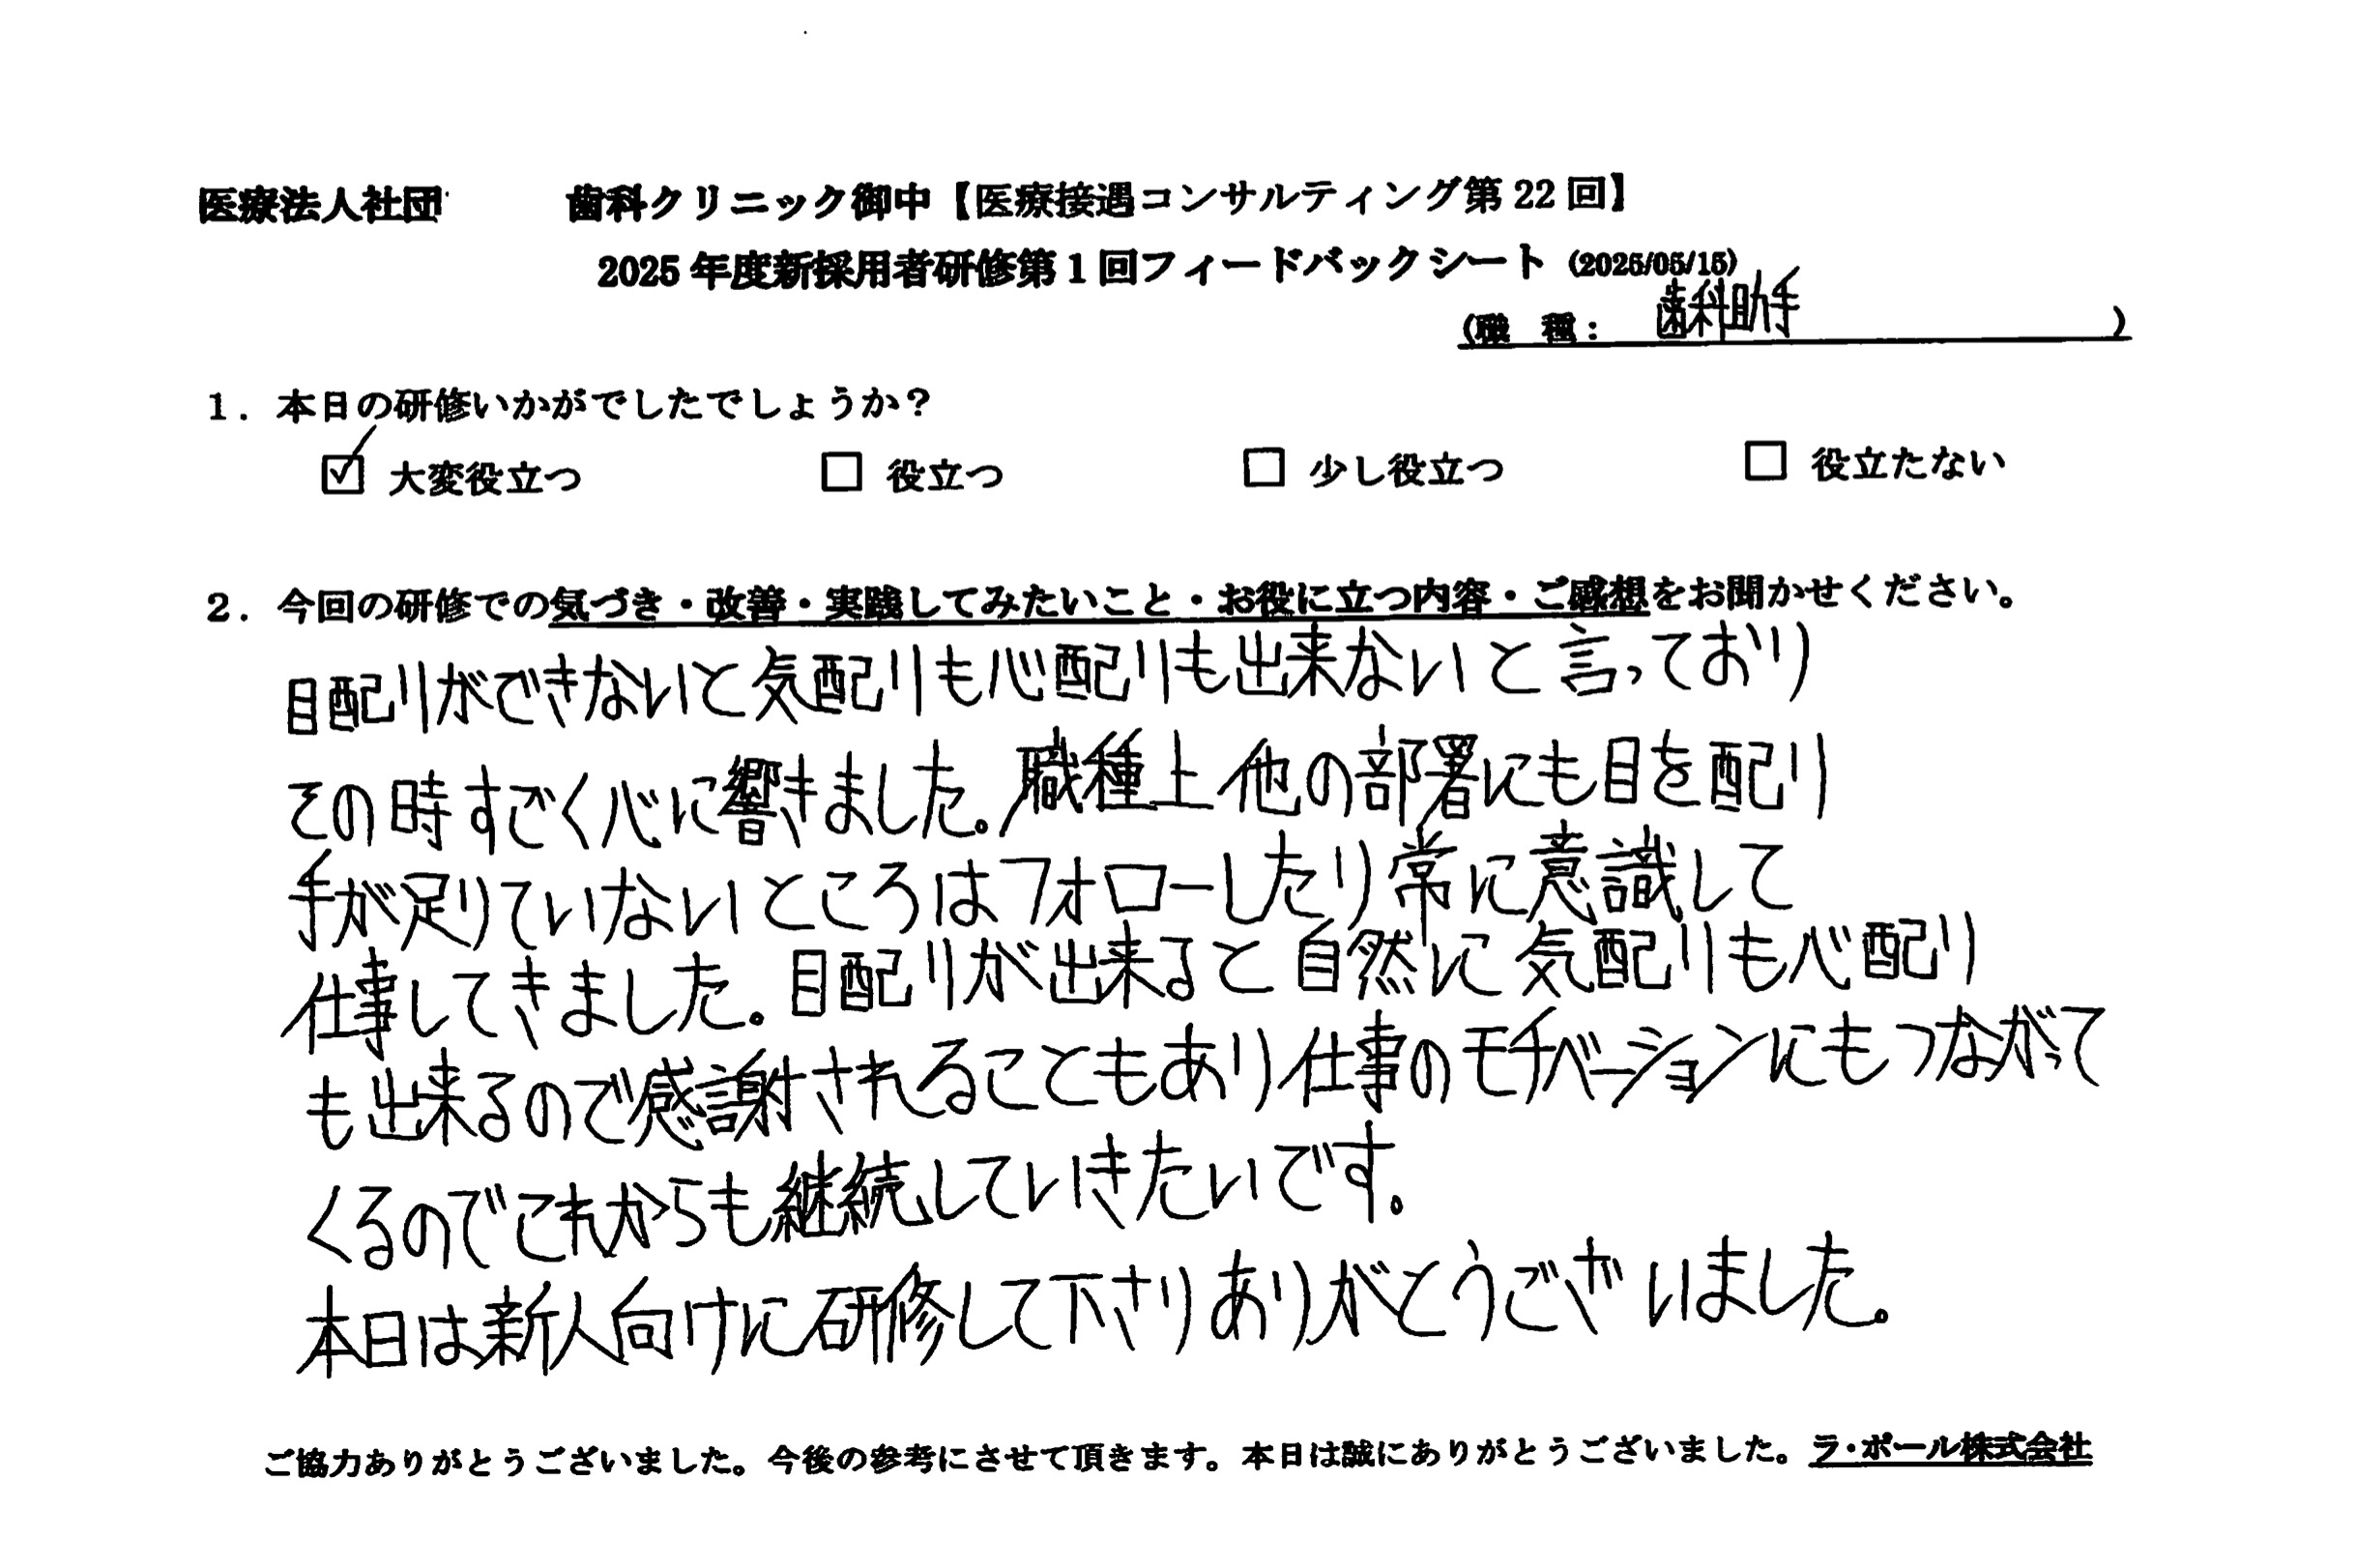 医療法人社団 歯科クリニック御中【医療接遇コンサルティング第22回】
2025年度新採用者研修第1回フィードバックシート (2025/05/15)
(職 種： 歯科助手 )
1. 本日の研修いかがでしたでしょうか？
☑ 大変役立つ □ 役立つ □ 少し役立つ □ 役立たない
2. 今回の研修での気づき・改善・実践してみたいこと・お役に立つ内容・ご感想をお聞かせください。
目配りができないと気配りも心配りも出来ないと言っており
その時すごく心に響きました。職種上他の部署にも目を配り
手が足りていないところはフォローしたり常に意識して
仕事してきました。目配りが出来ると自然に気配りも心配り
も出来るので感謝されることもあり仕事のモチベーションにもつながって
くるのでこれからも継続していきたいです。
本日は新人向けに研修して下さりありがとうございました。
ご協力ありがとうございました。今後の参考にさせて頂きます。本日は誠にありがとうございました。ラ・ポール株式会社